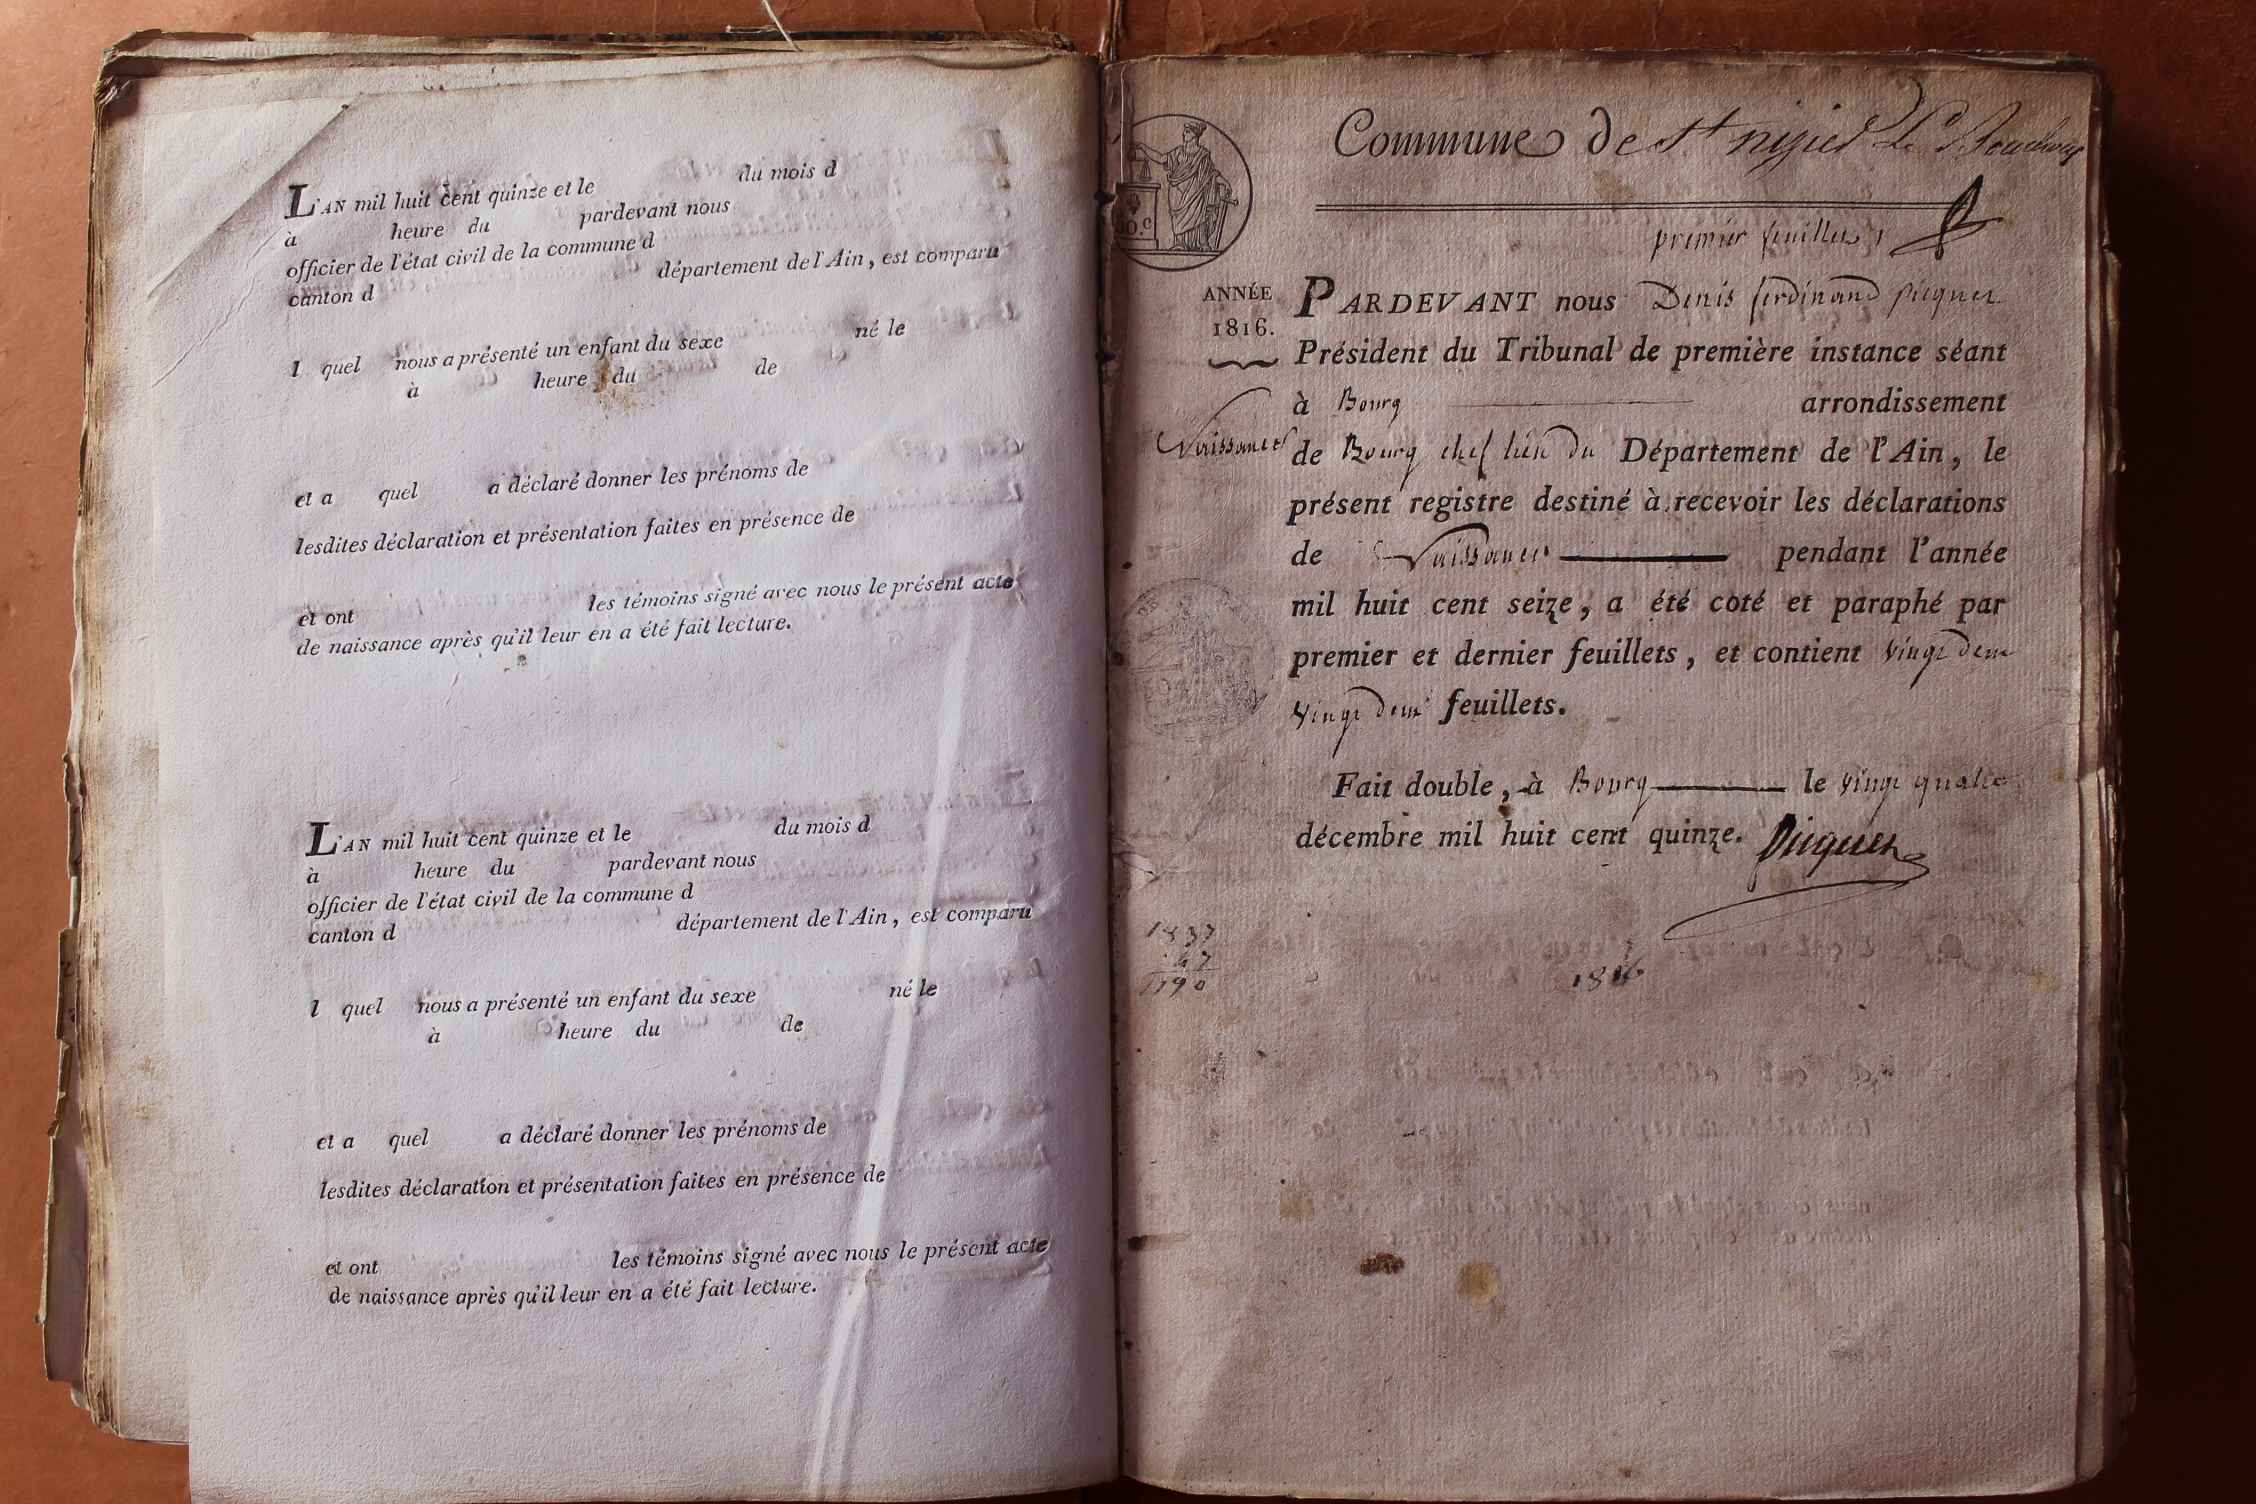 L'AN mil huit cent quinze et le du mois d
à heure du pardevant nous
officier de l'état civil de la commune d
canton d département de l'Ain, est comparu
l quel nous a présenté un enfant du sexe né le
à heure du de
et a quel a déclaré donner les prénoms de
lesdites déclaration et présentation faites en présence de
et ont les témoins signé avec nous le présent acte
de naissance après qu'il leur en a été fait lecture.
L'AN mil huit cent quinze et le du mois d
à heure du pardevant nous
officier de l'état civil de la commune d
canton d département de l'Ain, est comparu
l quel nous a présenté un enfant du sexe né le
à heure du de
et a quel a déclaré donner les prénoms de
lesdites déclaration et présentation faites en présence de
et ont les témoins signé avec nous le présent acte
de naissance après qu'il leur en a été fait lecture.
Commune de St nizier Le Bouchoux
premier feuillet 1
ANNÉE
1816.
Naissances
PARDEVANT nous Denis ferdinand picquet
Président du Tribunal de première instance séant
à Bourg arrondissement
de Bourg chef lieu du Département de l'Ain, le
présent registre destiné à recevoir les déclarations
de Naissances pendant l'année
mil huit cent seize, a été coté et paraphé par
premier et dernier feuillets, et contient vingt deux
vingt deux feuillets.
Fait double, à Bourg le vingt quatre
décembre mil huit cent quinze. Picquet
1837
47
1790
1816